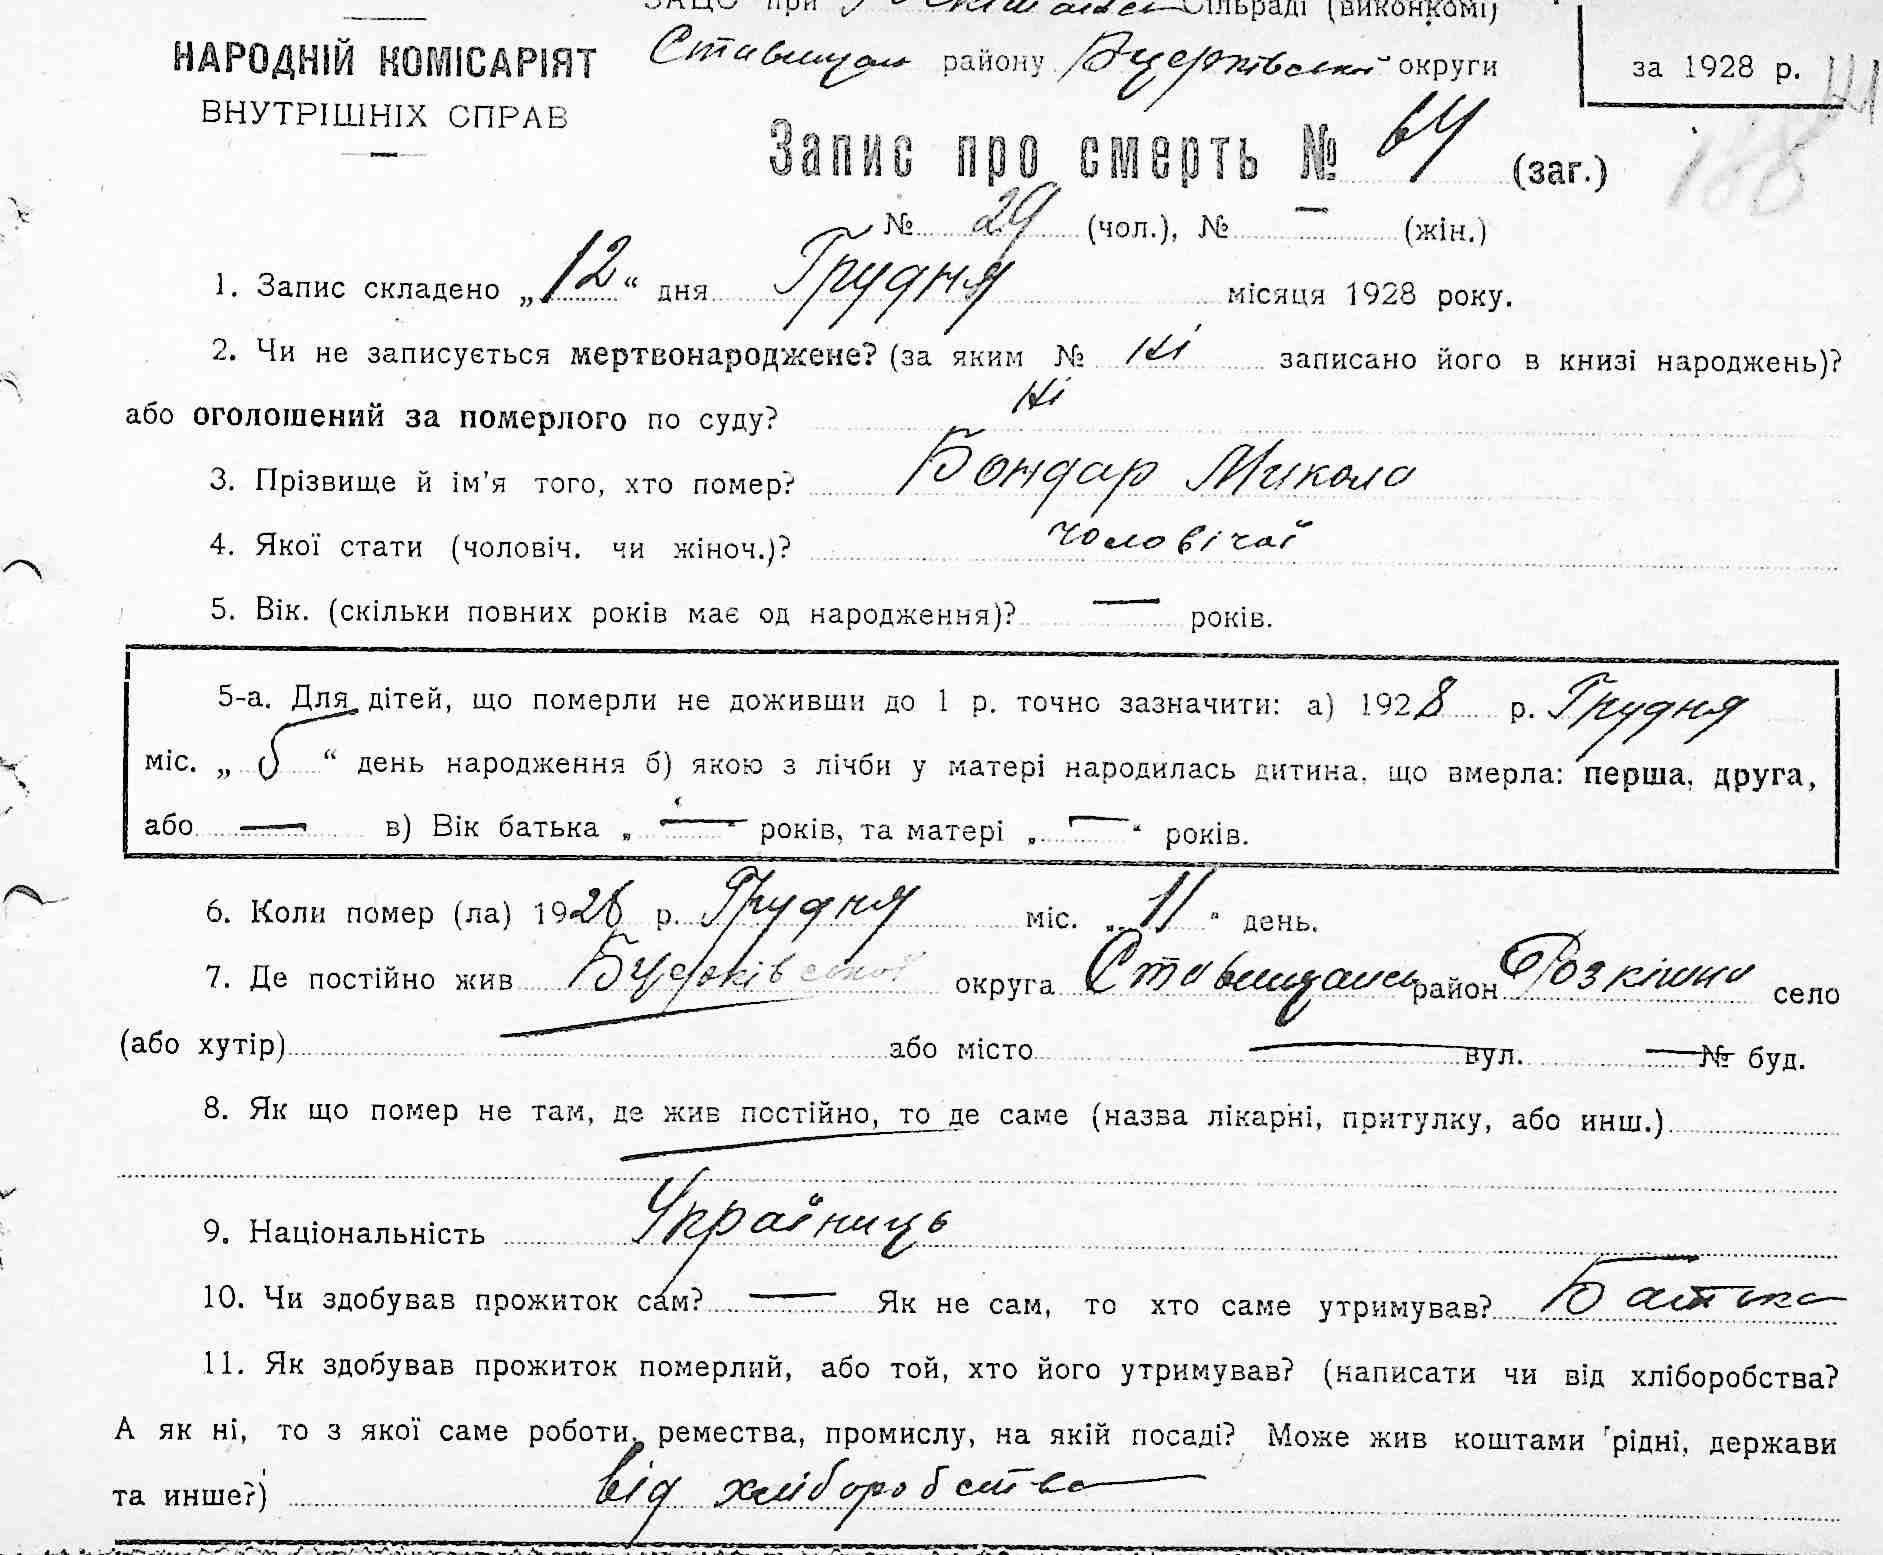 ЗАЦС при сільраді (виконкомі)
НАРОДНІЙ КОМІСАРІЯТ
ВНУТРІШНІХ СПРАВ
району Бцерківської округи
за 1928 р.
188
Запис про смерть № 64 (заг.)
№ 29 (чол.), № — (жін.)
1. Запис складено „12“ дня Грудня місяця 1928 року.
2. Чи не записується мертвонароджене? (за яким № Ні записано його в книзі народжень)?
або оголошений за померлого по суду? Ні
3. Прізвище й ім'я того, хто помер? Бондар Микола
4. Якої стати (чоловіч. чи жіноч.)? чоловічої
5. Вік. (скільки повних років має од народження)? — років.
5-а. Для дітей, що померли не доживши до 1 р. точно зазначити: а) 1928 р. Грудня
міс. „5“ день народження б) якою з лічби у матері народилась дитина, що вмерла: перша, друга,
або — в) Вік батька „—“ років, та матері „—“ років.
6. Коли помер (ла) 1928 р. Грудня міс. „11“ день.
7. Де постійно жив Бцерківської округа Ставищанськ район Розкішна село
(або хутір) — або місто — вул. — № буд.
8. Як що помер не там, де жив постійно, то де саме (назва лікарні, притулку, або инш.) —
9. Національність Українець
10. Чи здобував прожиток сам? — Як не сам, то хто саме утримував? Батько
11. Як здобував прожиток померлий, або той, хто його утримував? (написати чи від хліборобства?
А як ні, то з якої саме роботи, ремества, промислу, на якій посаді? Може жив коштами рідні, держави
та инше?) від хліборобства